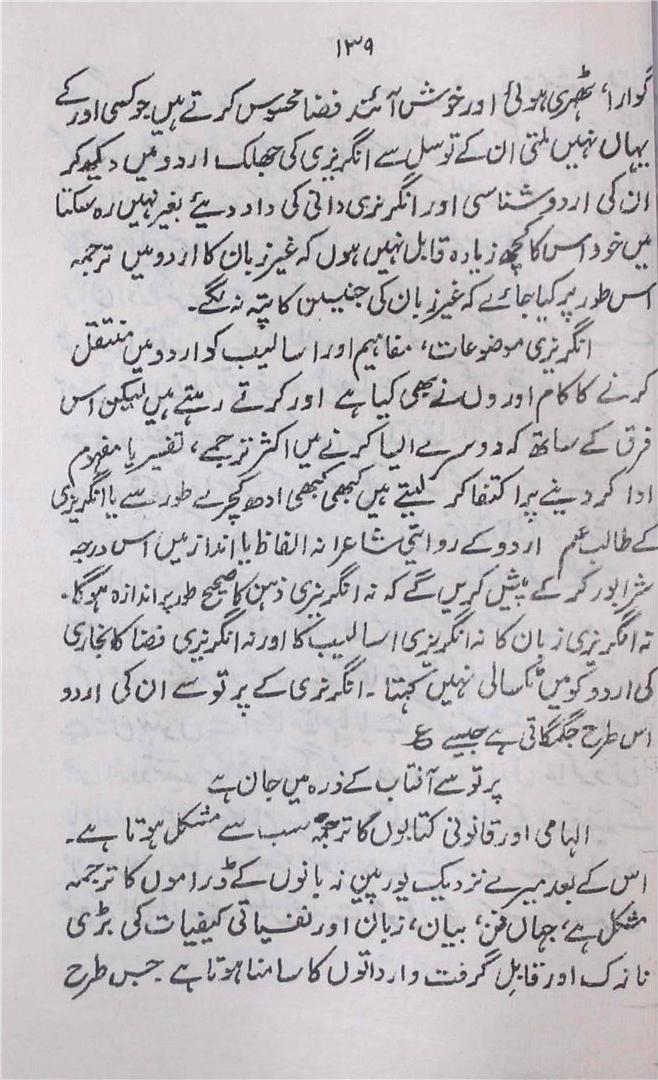 ۱۳۹
گوارا، ٹھہری ہوئی اور خوش آئند فضا محسوس کرتے ہیں جو کسی اور کے
یہاں نہیں ملتی ان کے توسل سے انگریزی کی جھلک اردو میں دیکھ کر
ان کی اردو شناسی اور انگریزی دانی کی داد دیئے بغیر نہیں رہ سکتا
میں خود اس کا کچھ زیادہ قابل نہیں ہوں کہ غیر زبان کا اردو میں ترجمہ
اس طور پر کیا جائے کہ غیر زبان کی جینیس کا پتہ نہ لگے۔
انگریزی موضوعات، مفاہیم اور اسالیب کو اردو میں منتقل
کرنے کا کام اوروں نے بھی کیا ہے اور کرتے رہتے ہیں لیکن اس
فرق کے ساتھ کہ دوسرے ایسا کرنے میں اکثر ترجمے، تفسیر یا مفہوم
ادا کر دینے پر اکتفا کر لیتے ہیں کبھی کبھی ادھ کچرے طور سے یا انگریزی
کے طالب علم اردو کے روایتی شاعرانہ الفاظ یا انداز میں اس درجہ
شرابور کر کے پیش کریں گے کہ نہ انگریزی ذہن کا صحیح طور پر اندازہ ہوگا۔
نہ انگریزی زبان کا نہ انگریزی اسالیب کا اور نہ انگریزی فضا کا بخاری
کی اردو کو میں ٹکسالی نہیں کہتا۔ انگریزی کے پرتو سے ان کی اردو
اس طرح جگمگاتی ہے جیسے ع
پرتو سے آفتاب کے ذرہ میں جان ہے
الہامی اور قانونی کتابوں کا ترجمہ سب سے مشکل ہوتا ہے۔
اس کے بعد میرے نزدیک یورپین زبانوں کے ڈراموں کا ترجمہ
مشکل ہے، جہاں فن، بیان، زبان اور نفسیاتی کیفیات کی بڑی
نازک اور قابل گرفت وارداتوں کا سامنا ہوتا ہے۔ جس طرح